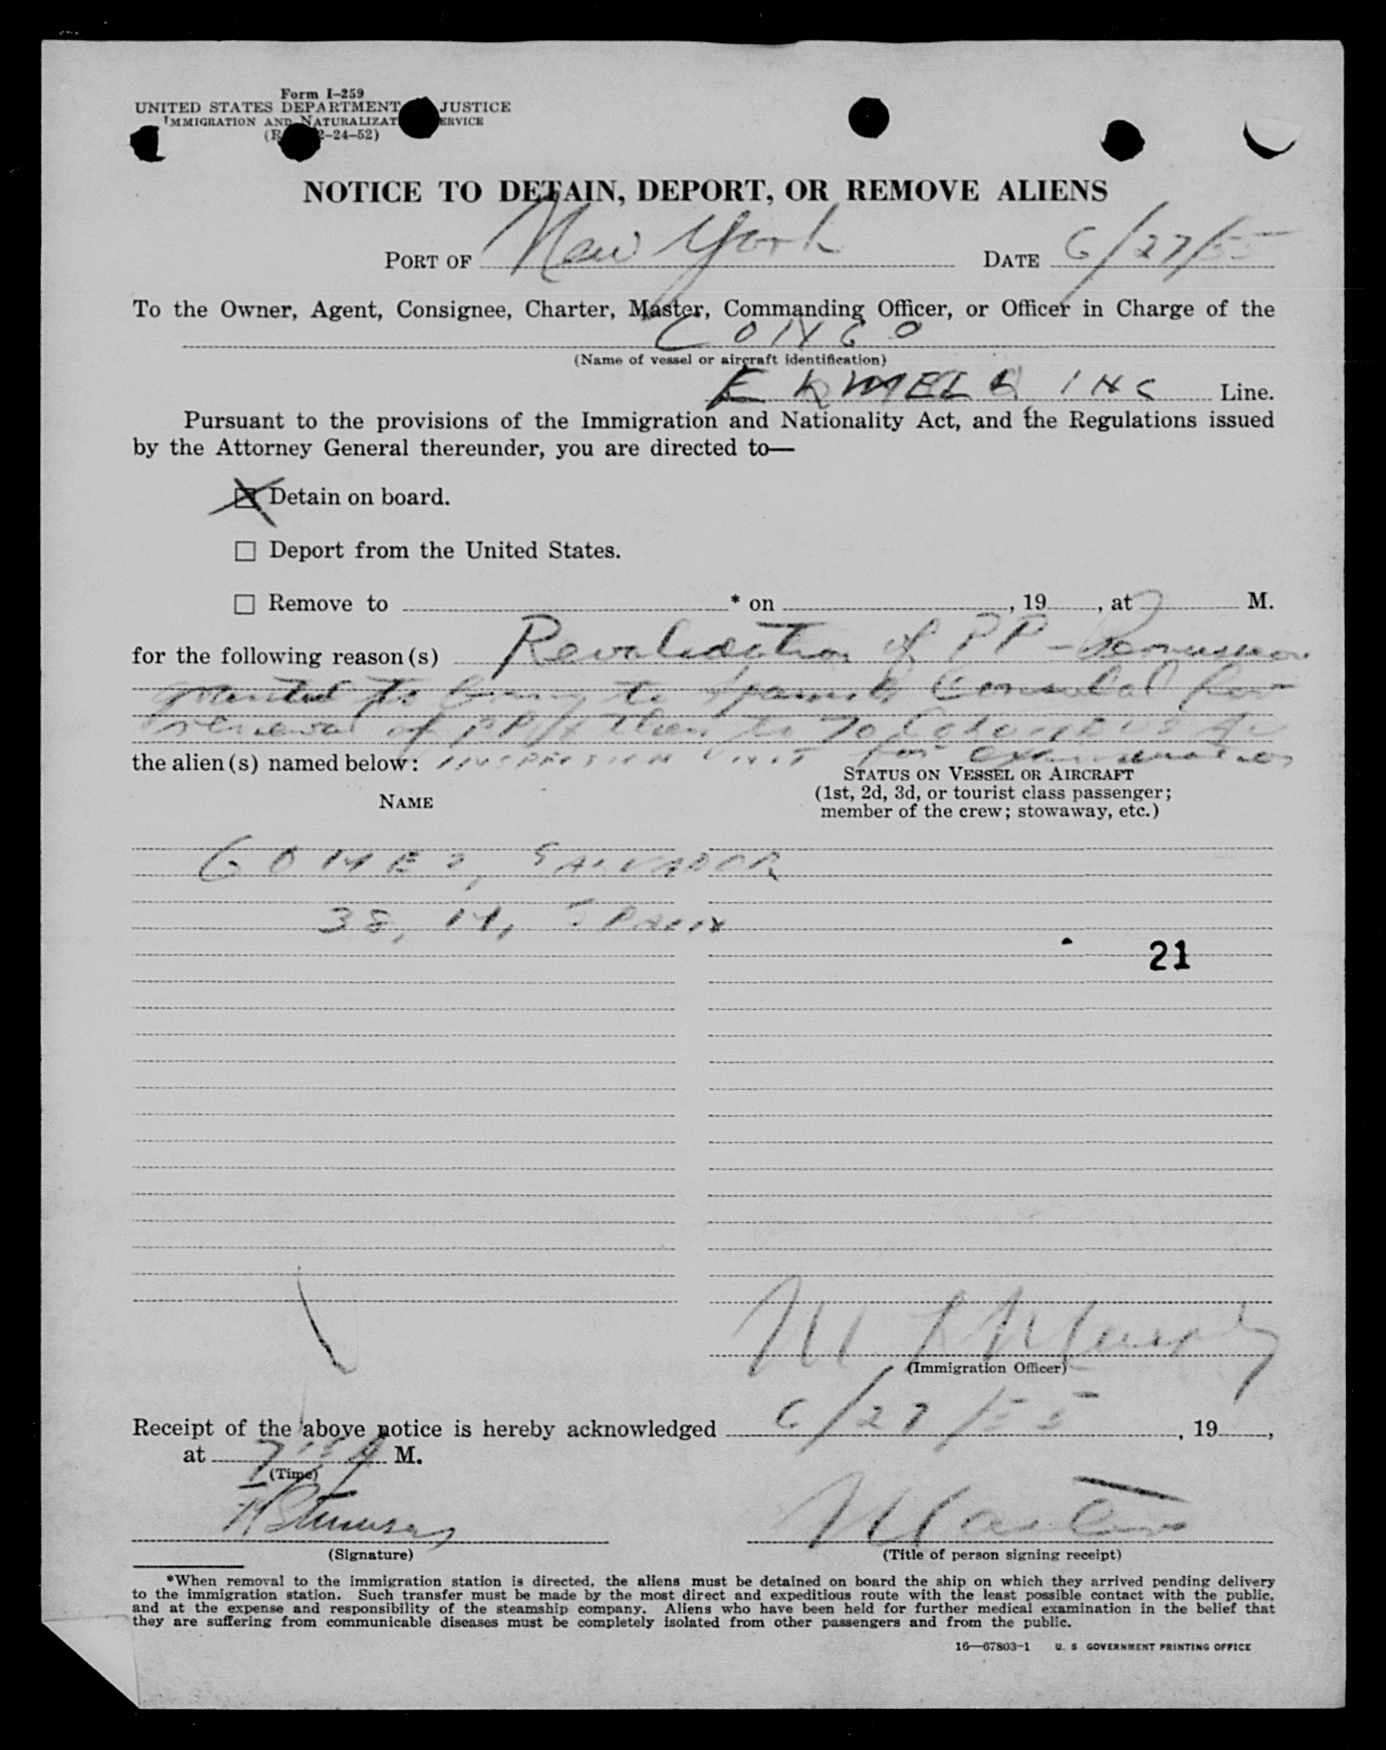 Form I-259
UNITED STATES DEPARTMENT JUSTICE
IMMIGRATION AND NATURALIZAT SERVICE
2-24-52)
NOTICE TO DETAIN, DEPORT, OR REMOVE ALIENS
PORT OF New York DATE 6/27/55
To the Owner, Agent, Consignee, Charter, Master, Commanding Officer, or Officer in Charge of the
CONGO
(Name of vessel or aircraft identification)
INC Line.
Pursuant to the provisions of the Immigration and Nationality Act, and the Regulations issued
by the Attorney General thereunder, you are directed to—
Detain on board.
Deport from the United States.
Remove to * on , 19 , at M.
for the following reason(s) Revalidation of PP - Permission
granted to bring to Spanish Consulat for
renewal of PP & then to 70 Columbus Av
the alien(s) named below: INSPECTION UNIT for examination
STATUS ON VESSEL OR AIRCRAFT
(1st, 2d, 3d, or tourist class passenger;
member of the crew; stowaway, etc.)
NAME
GOMEZ, SALVADOR
38, M, SPAIN
21
M Murphy
(Immigration Officer)
Receipt of the above notice is hereby acknowledged 6/27/55, 19 ,
at A M.
(Time)
Master
(Signature) (Title of person signing receipt)
*When removal to the immigration station is directed, the aliens must be detained on board the ship on which they arrived pending delivery
to the immigration station. Such transfer must be made by the most direct and expeditious route with the least possible contact with the public,
and at the expense and responsibility of the steamship company. Aliens who have been held for further medical examination in the belief that
they are suffering from communicable diseases must be completely isolated from other passengers and from the public.
16—67803-1 U. S GOVERNMENT PRINTING OFFICE